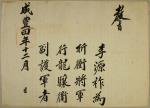 敎旨
李源祚為
折衝將軍
行龍驤衛
副護軍者
咸豊四年十二月 日